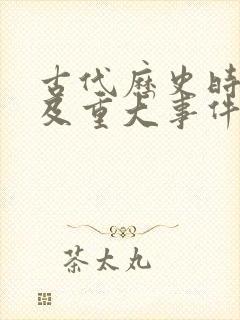 古代历史时
及重大事件
茶太丸